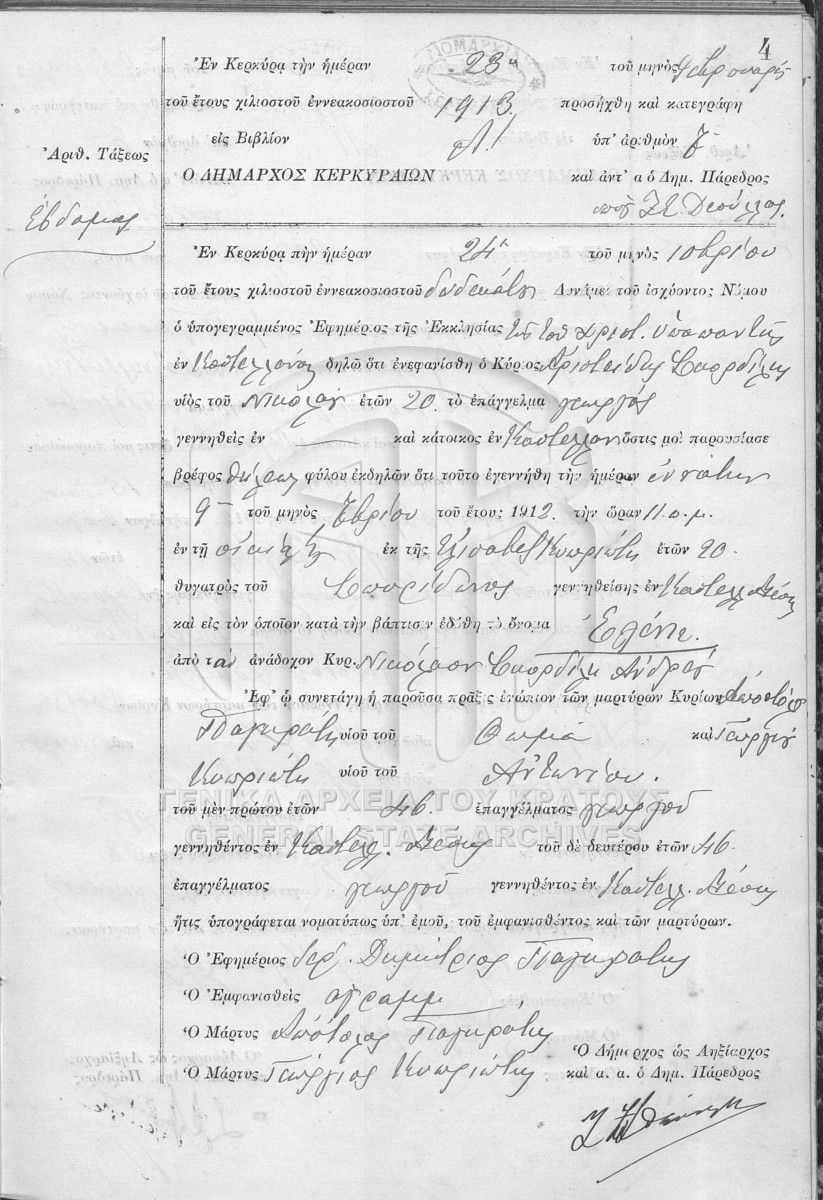 4
Ἐν Κερκύρᾳ τὴν ἡμέραν 23η τοῦ μηνὸς
τοῦ ἔτους χιλιοστοῦ ἐννεακοσιοστοῦ 1913 προσήχθη καὶ κατεγράφη
εἰς Βιβλίον Α! ὑπ' ἀριθμὸν 7
Ἀριθ. Τάξεως
Ὁ ΔΗΜΑΡΧΟΣ ΚΕΡΚΥΡΑΙΩΝ καὶ ἀντ' α ὁ Δημ. Πάρεδρος
Ἑβδομος
Ἐν Κερκύρᾳ πὴν ἡμέραν 24η τοῦ μηνὸς 10βρίου
τοῦ ἔτους χιλιοστοῦ ἐννεακοσιοστοῦ δωδεκάτου Δυνάμει τοῦ ἰσχύοντος Νόμου
ὁ ὑπογεγραμμένος Ἐφημέριος τῆς Ἐκκλησίας τῆς τοῦ Χριστ. Ὑπαπαντῆς
ἐν Καστελλάνοι δηλῶ ὅτι ἐνεφανίσθη ὁ Κύριος Ἀριστείδης Σκορδίλης
υἱὸς τοῦ Νικολάου ἐτῶν 20. τὸ ἐπάγγελμα γεωργός
γεννηθεὶς ἐν καὶ κάτοικος ἐν Καστελλάνοι ὅστις μοὶ παρουσίασε
βρέφος θήλεος φύλου ἐκδηλῶν ὅτι τοῦτο ἐγεννήθη τὴν ἡμέραν ἐννάτην
9 τοῦ μηνὸς 7βρίου τοῦ ἔτους 1912. τὴν ὥραν 11 π.μ.
ἐν τῇ οἰκίᾳ ἐκ τῆς Ἐλισάβετ Κυπριώτη ἐτῶν 20.
θυγατρὸς τοῦ Σπυρίδωνος γεννηθείσης ἐν Καστελλ. Μέσης
καὶ εἰς τὸν ὁποῖον κατὰ τὴν βάπτισιν ἐδόθη τὸ ὄνομα Ἑλένη.
ἀπὸ τὸν ἀνάδοχον Κυρ. Νικόλαον Σκορδίλη Ἀνδρέα
Ἐφ' ᾧ συνετάγη ἡ παροῦσα πρᾶξις ἐνώπιον τῶν μαρτύρων Κυρίων Ἀποστόλου
Παγκράτη υἱοῦ τοῦ Θωμᾶ καὶ Γεωργίου
Κυπριώτη υἱοῦ τοῦ Ἀντωνίου.
ΓΕΝΙΚΑ ΑΡΧΕΙΑ ΤΟΥ ΚΡΑΤΟΥΣ
τοῦ μὲν πρώτου ἐτῶν 46 ἐπαγγέλματος γεωργοῦ
GENERAL STATE ARCHIVES
γεννηθέντος ἐν Καστελλ. Μέσης τοῦ δὲ δευτέρου ἐτῶν 46.
ἐπαγγέλματος γεωργοῦ γεννηθέντος ἐν Καστελλ. Μέσης
ἥτις ὑπογράφεται νομοτύπως ὑπ' ἐμοῦ, τοῦ ἐμφανισθέντος καὶ τῶν μαρτύρων.
Ὁ Ἐφημέριος Ἱερ. Δημήτριος Παγκράτης
Ὁ Ἐμφανισθεὶς αγραμμ
Ὁ Μάρτυς Ἀπόστολος Παγκράτης
Ὁ Μάρτυς Γεώργιος Κυπριώτης
Ὁ Δήμαρχος ὡς Ληξίαρχος
καὶ α. α. ὁ Δημ. Πάρεδρος